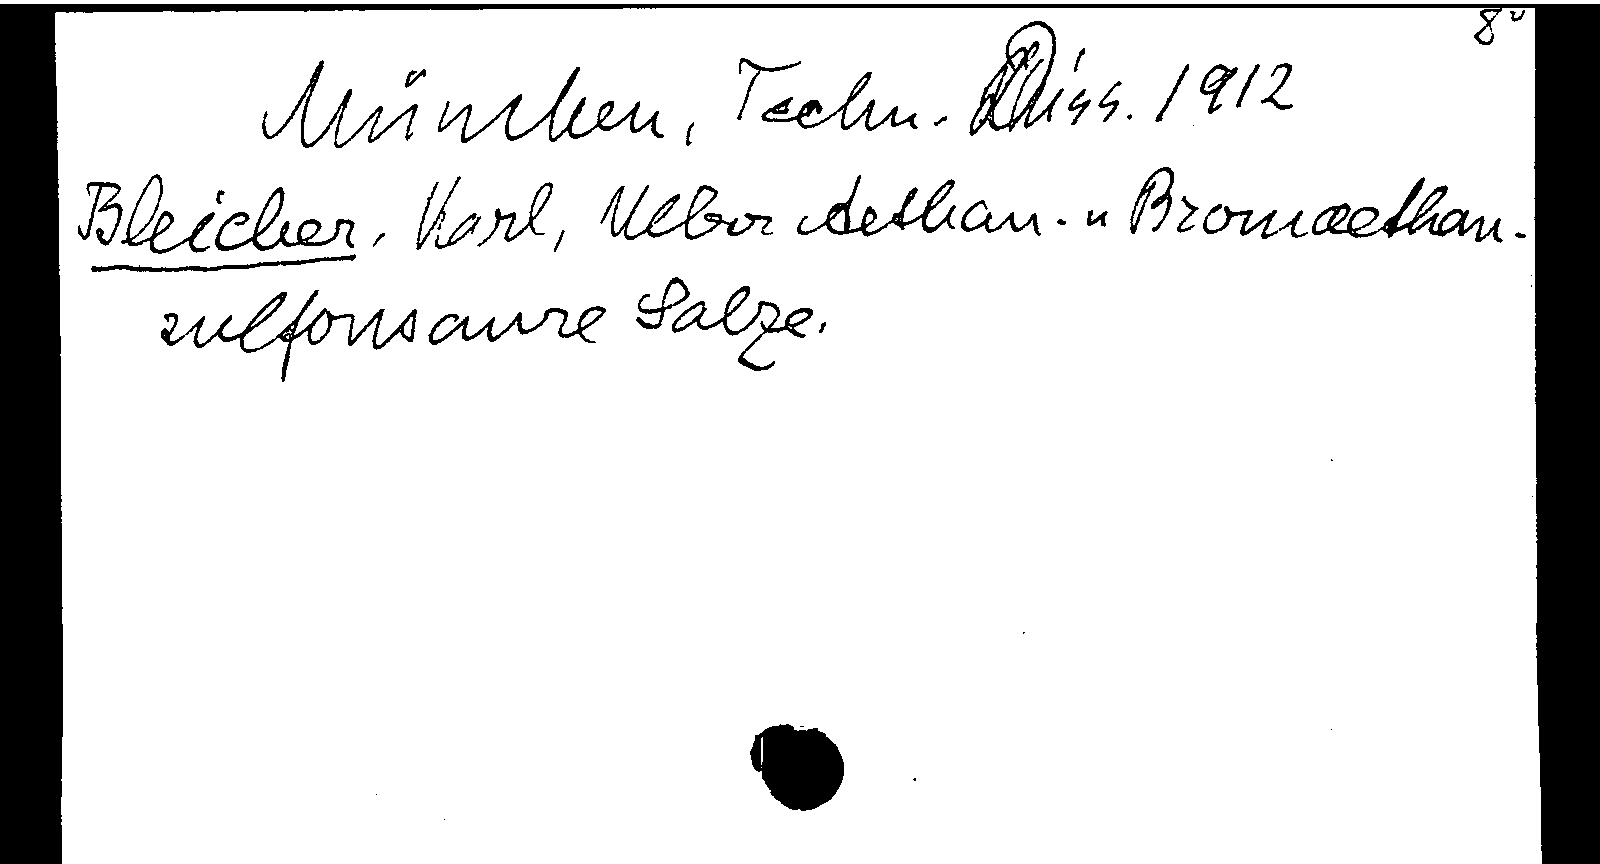 8°
München, Techn. Diss. 1912
Bleicher, Karl, Ueber Aethan- u Bromaethan-
sulfonsaure Salze.